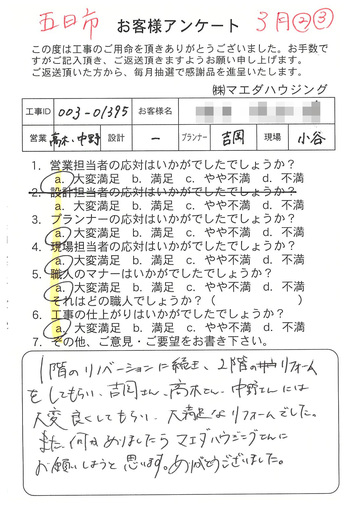 五日市 お客様アンケート 3月②③
この度は工事のご用命を頂きありがとうございました。お手数で
すがご記入頂き、ご返送頂きますようお願い申し上げます。
ご返送頂いた方から、毎月抽選で感謝品を進呈いたします。
㈱マエダハウジング
工事ID 003-01395 お客様名
営業 高木、中野 設計 ー プランナー 吉岡 現場 小谷
1. 営業担当者の応対はいかがでしたでしょうか?
a. 大変満足 b. 満足 c. やや不満 d. 不満
2. 設計担当者の応対はいかがでしたでしょうか?
a. 大変満足 b. 満足 c. やや不満 d. 不満
3. プランナーの応対はいかがでしたでしょうか?
a. 大変満足 b. 満足 c. やや不満 d. 不満
4. 現場担当者の応対はいかがでしたでしょうか?
a. 大変満足 b. 満足 c. やや不満 d. 不満
5. 職人のマナーはいかがでしたでしょうか?
a. 大変満足 b. 満足 c. やや不満 d. 不満
それはどの職人でしょうか?( )
6. 工事の仕上がりはいかがでしたでしょうか?
a. 大変満足 b. 満足 c. やや不満 d. 不満
7. その他、ご意見・ご要望をお書き下さい。
1階のリノベーションに続き、2階のリフォーム
をしてもらい、吉岡さん、高木さん、中野さんには
大変良くしてもらい、大満足なリフォームでした。
また、何かありましたらマエダハウジングさんに
お願いしようと思います。ありがとうございました。